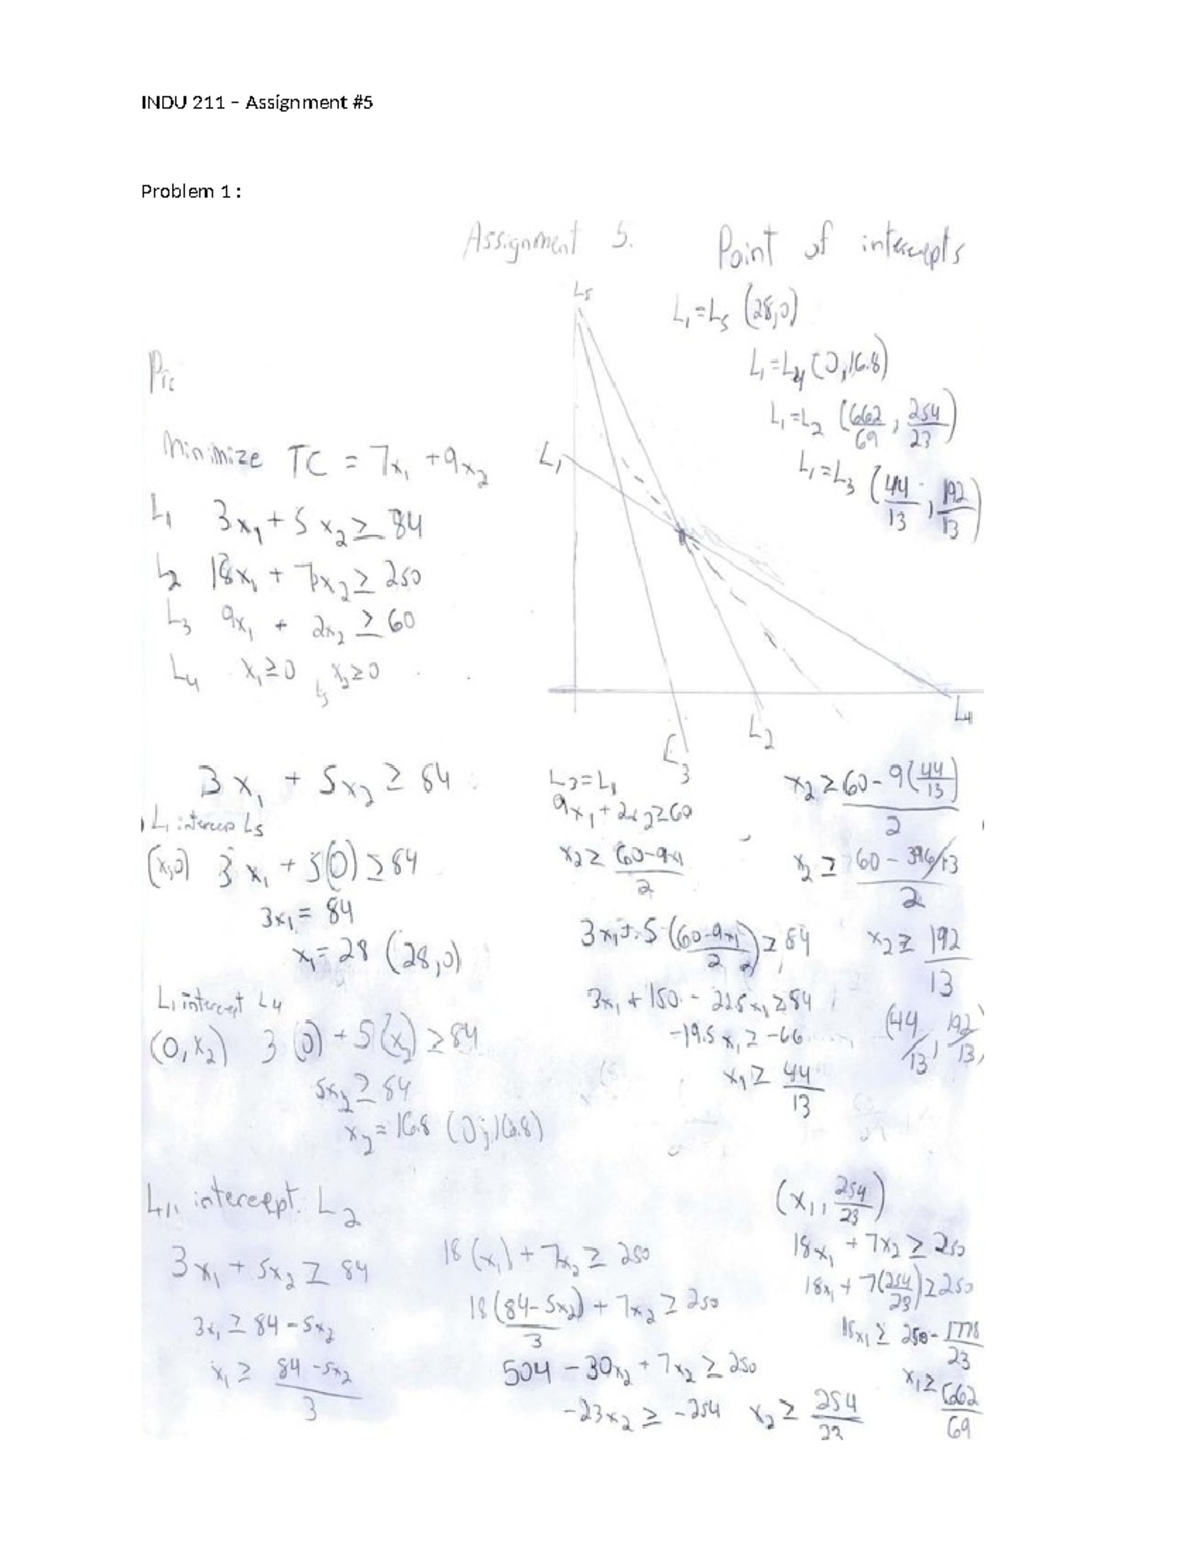 INDU 211 – Assignment #5
Problem 1 :
Assignment 5.
Point of intercepts
L5
L1=L5 (28,0)
L1=L4 (0,16.8)
L1=L2 (662/69, 254/23)
L1=L3 (44/13, 192/13)
Minimize TC = 7x1 +9x2
L1 3x1 + 5x2 ≥ 84
L2 18x1 + 7x2 ≥ 250
L3 9x1 + 2x2 ≥ 60
L4 x1≥0 , L5 x2≥0
L1
L4
L2
L3
3x1 + 5x2 ≥ 84
L1 intercep L5
(x,0) 3x1 + 5(0) ≥ 84
3x1 = 84
x1 = 28 (28,0)
L1 intercept L4
(0,x2) 3(0) + 5(x2) ≥ 84
5x2 ≥ 84
x2 = 16.8 (0,16.8)
L3=L1
9x1 + 2x2 ≥ 60
x2 ≥ 60-9x1/2
3x1 + 5(60-9x1/2) ≥ 84
3x1 + 150 - 22.5x1 ≥ 84
-19.5x1 ≥ -66
x1 ≥ 44/13
x2 ≥ 60-9(44/13)/2
x2 ≥ 60 - 396/13/2
x2 ≥ 192/13
(44/13, 192/13)
L1, intercept L2
3x1 + 5x2 ≥ 84
3x1 ≥ 84-5x2
x1 ≥ 84-5x2/3
18(x1) + 7x2 ≥ 250
18(84-5x2)/3 + 7x2 ≥ 250
504 - 30x2 + 7x2 ≥ 250
-23x2 ≥ -254 x2 ≥ 254/23
(x1, 254/23)
18x1 + 7x2 ≥ 250
18x1 + 7(254/23) ≥ 250
18x1 ≥ 250 - 1778/23
x1 ≥ 662/69